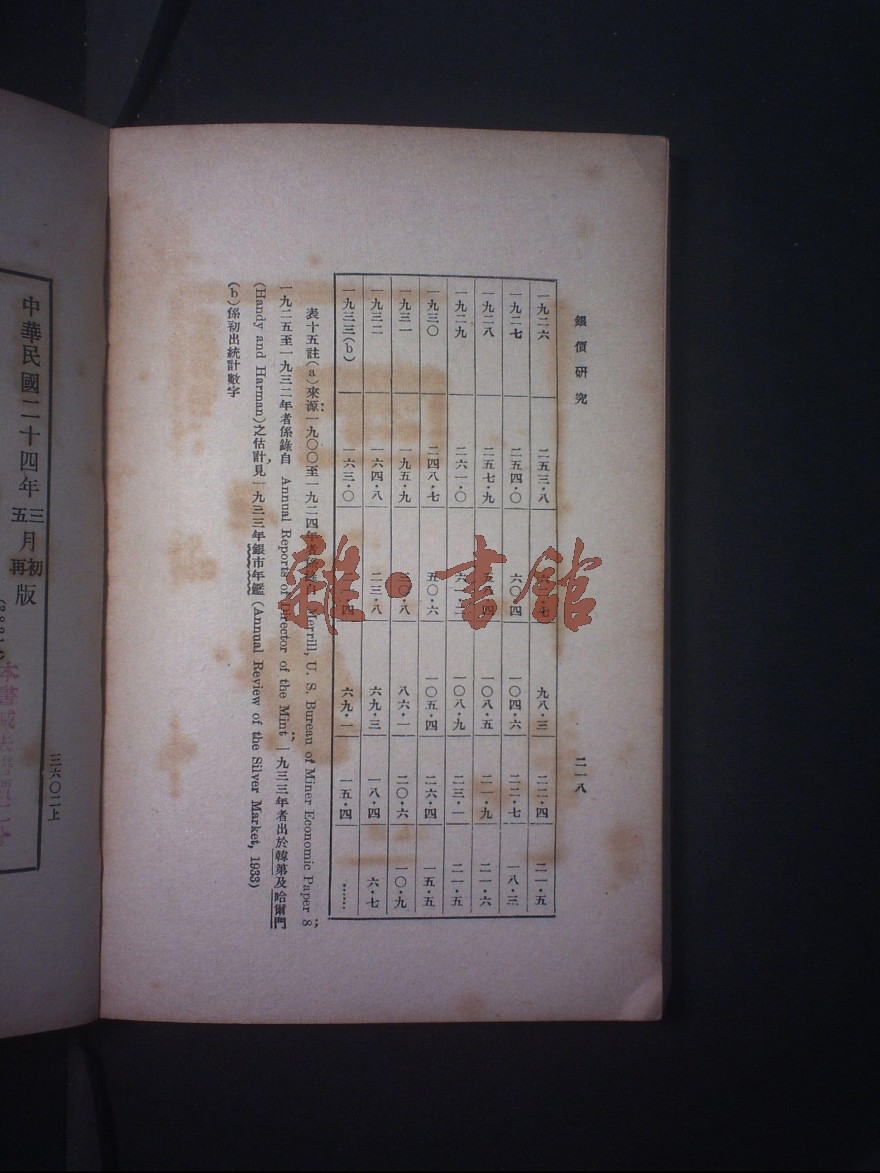 銀價研究
二一八
一九二六 二五三·八 九八·三 二二·四 二一·五
一九二七 二五四·〇 六〇·四 一〇四·六 二二·七 一八·三
一九二八 二五七·九 一〇八·五 二一·九 二一·六
一九二九 二六一·〇 一〇八·九 二三·一 二一·五
一九三〇 二四八·七 五〇·六 一〇五·四 二六·四 一五·五
一九三一 一九五·九 八六·一 二〇·六 一〇·九
一九三二 一六四·八 二三·八 六九·三 一八·四 六·七
一九三三(b) 一六三·〇 六九·一 一五·四 ……
表十五註(a)來源：一九〇〇至一九二四年者 Merrill, U. S. Bureau of Miner Economic Paper 8；
一九二五至一九三二年者係錄自 Annual Reports of Director of the Mint；一九三三年者出於韓第及哈爾門
(Handy and Harman)之估計，見一九三三年銀市年鑑 (Annual Review of the Silver Market, 1933)
(b)係初出統計數字
雜·書館
中華民國二十四年三月初版
五 再
三六〇二上